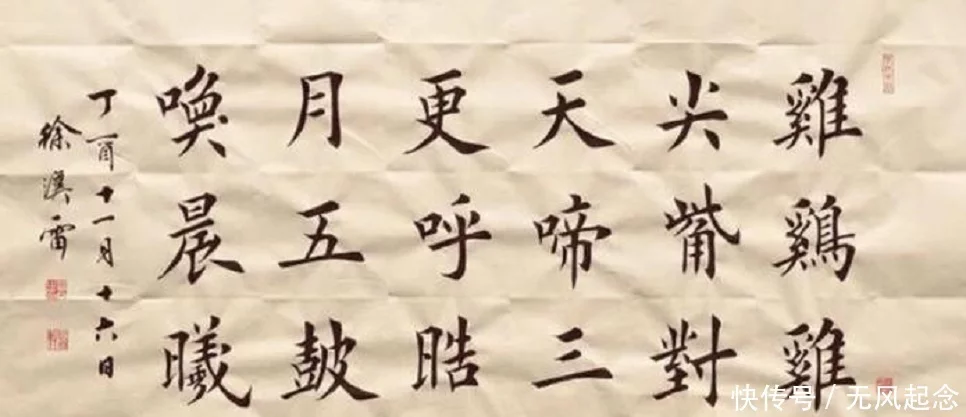 雞鷄雞
尖觜對
天啼三
更呼晧
月五皷
喚晨曦
丁酉十一月十六日
徐 雷
快传号/无风起念